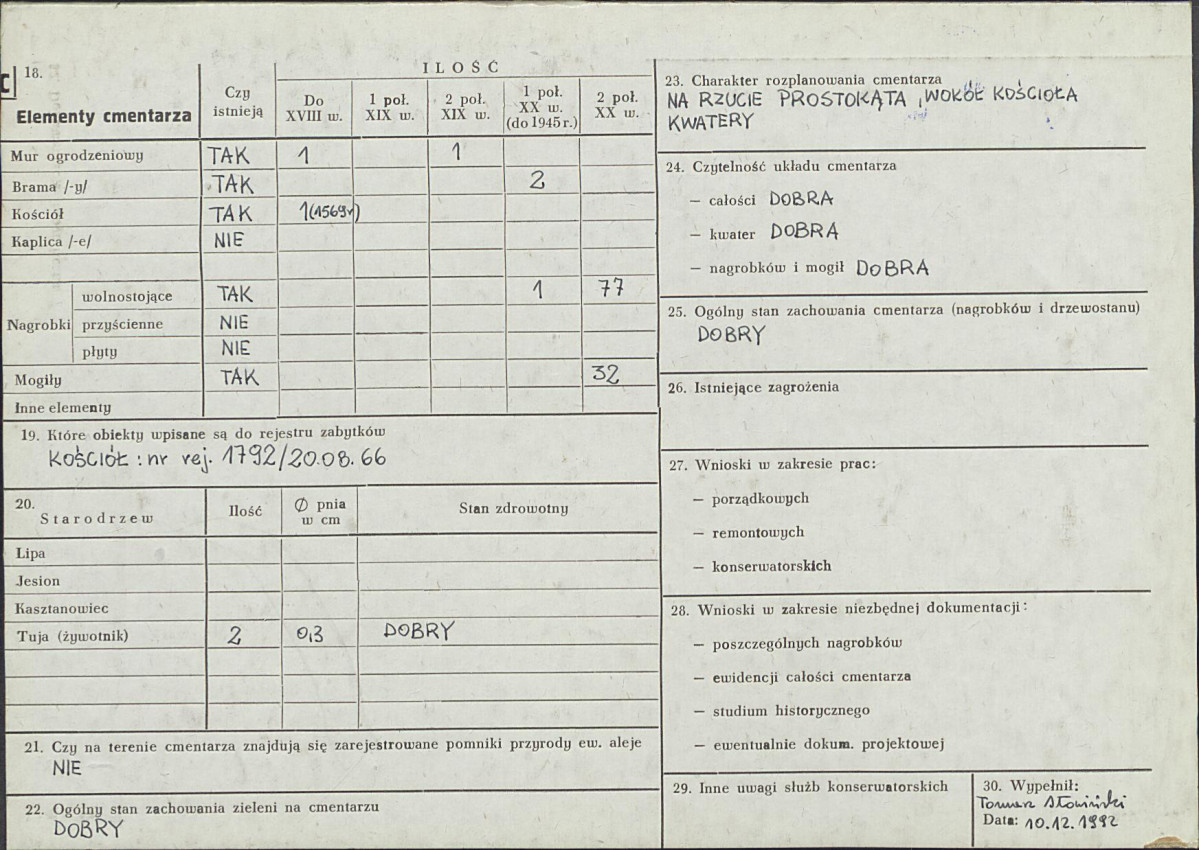 C
18.
Elementy cmentarza
Czy istnieją
ILOŚĆ
Do XVIII w.
1 poł. XIX w.
2 poł. XIX w.
1 poł. XX w. (do 1945 r.)
2 poł. XX w.
Mur ogrodzeniowy TAK 1 1
Brama /-y/ TAK 2
Kościół TAK 1 (1569r)
Kaplica /-e/ NIE
Nagrobki
wolnostojące TAK 1 77
przyścienne NIE
płyty NIE
Mogiły TAK 32
Inne elementy
19. Które obiekty wpisane są do rejestru zabytków
KOŚCIÓŁ : nr rej. 1792/20.08.66
20.
Starodrzew
Ilość
Ø pnia w cm
Stan zdrowotny
Lipa
Jesion
Kasztanowiec
Tuja (żywotnik) 2 0,3 DOBRY
21. Czy na terenie cmentarza znajdują się zarejestrowane pomniki przyrody ew. aleje
NIE
22. Ogólny stan zachowania zieleni na cmentarzu
DOBRY
23. Charakter rozplanowania cmentarza
NA RZUCIE PROSTOKĄTA, WOKÓŁ KOŚCIOŁA
KWATERY
24. Czytelność układu cmentarza
— całości DOBRA
— kwater DOBRA
— nagrobków i mogił DOBRA
25. Ogólny stan zachowania cmentarza (nagrobków i drzewostanu)
DOBRY
26. Istniejące zagrożenia
27. Wnioski w zakresie prac:
— porządkowych
— remontowych
— konserwatorskich
28. Wnioski w zakresie niezbędnej dokumentacji:
— poszczególnych nagrobków
— ewidencji całości cmentarza
— studium historycznego
— ewentualnie dokum. projektowej
29. Inne uwagi służb konserwatorskich
30. Wypełnił:
Tomasz Słomiński
Data: 10.12.1992